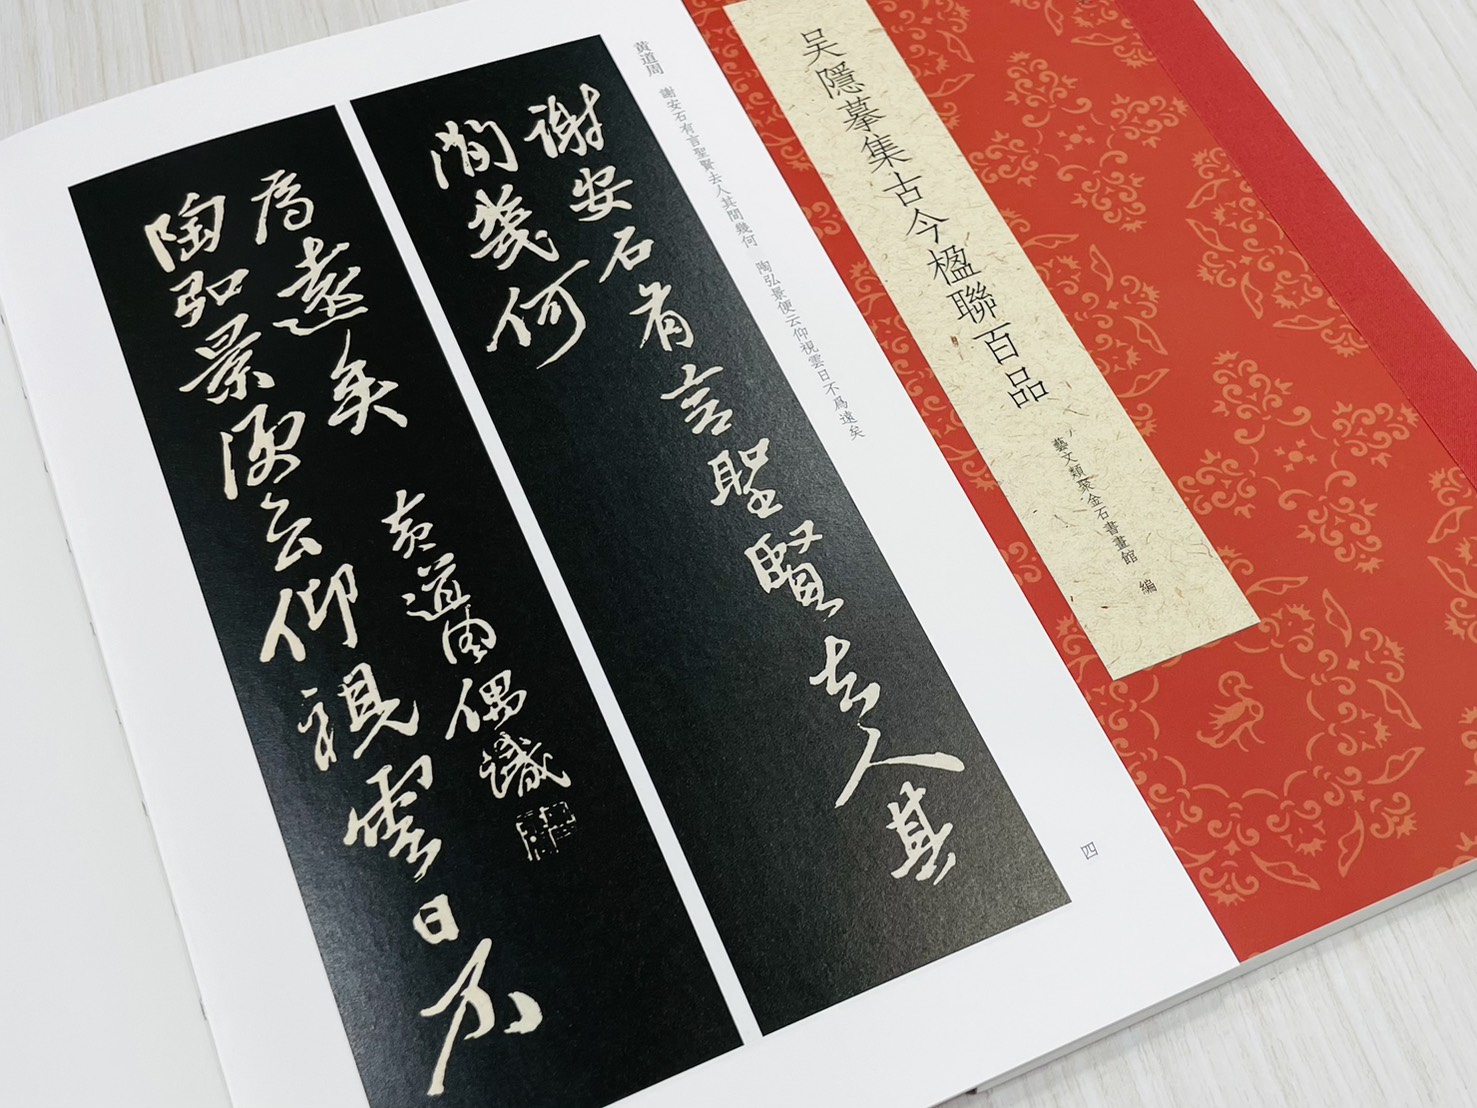 吴隱摹集古今楹聯百品
藝文類聚金石書畫館 編
黄道周 謝安石有言聖賢去人其間幾何 陶弘景便云仰視雲日不爲遠矣
謝安石有言聖賢去人其
間幾何
陶弘景便云仰視雲日不
為遠矣
黄道周偶識
四